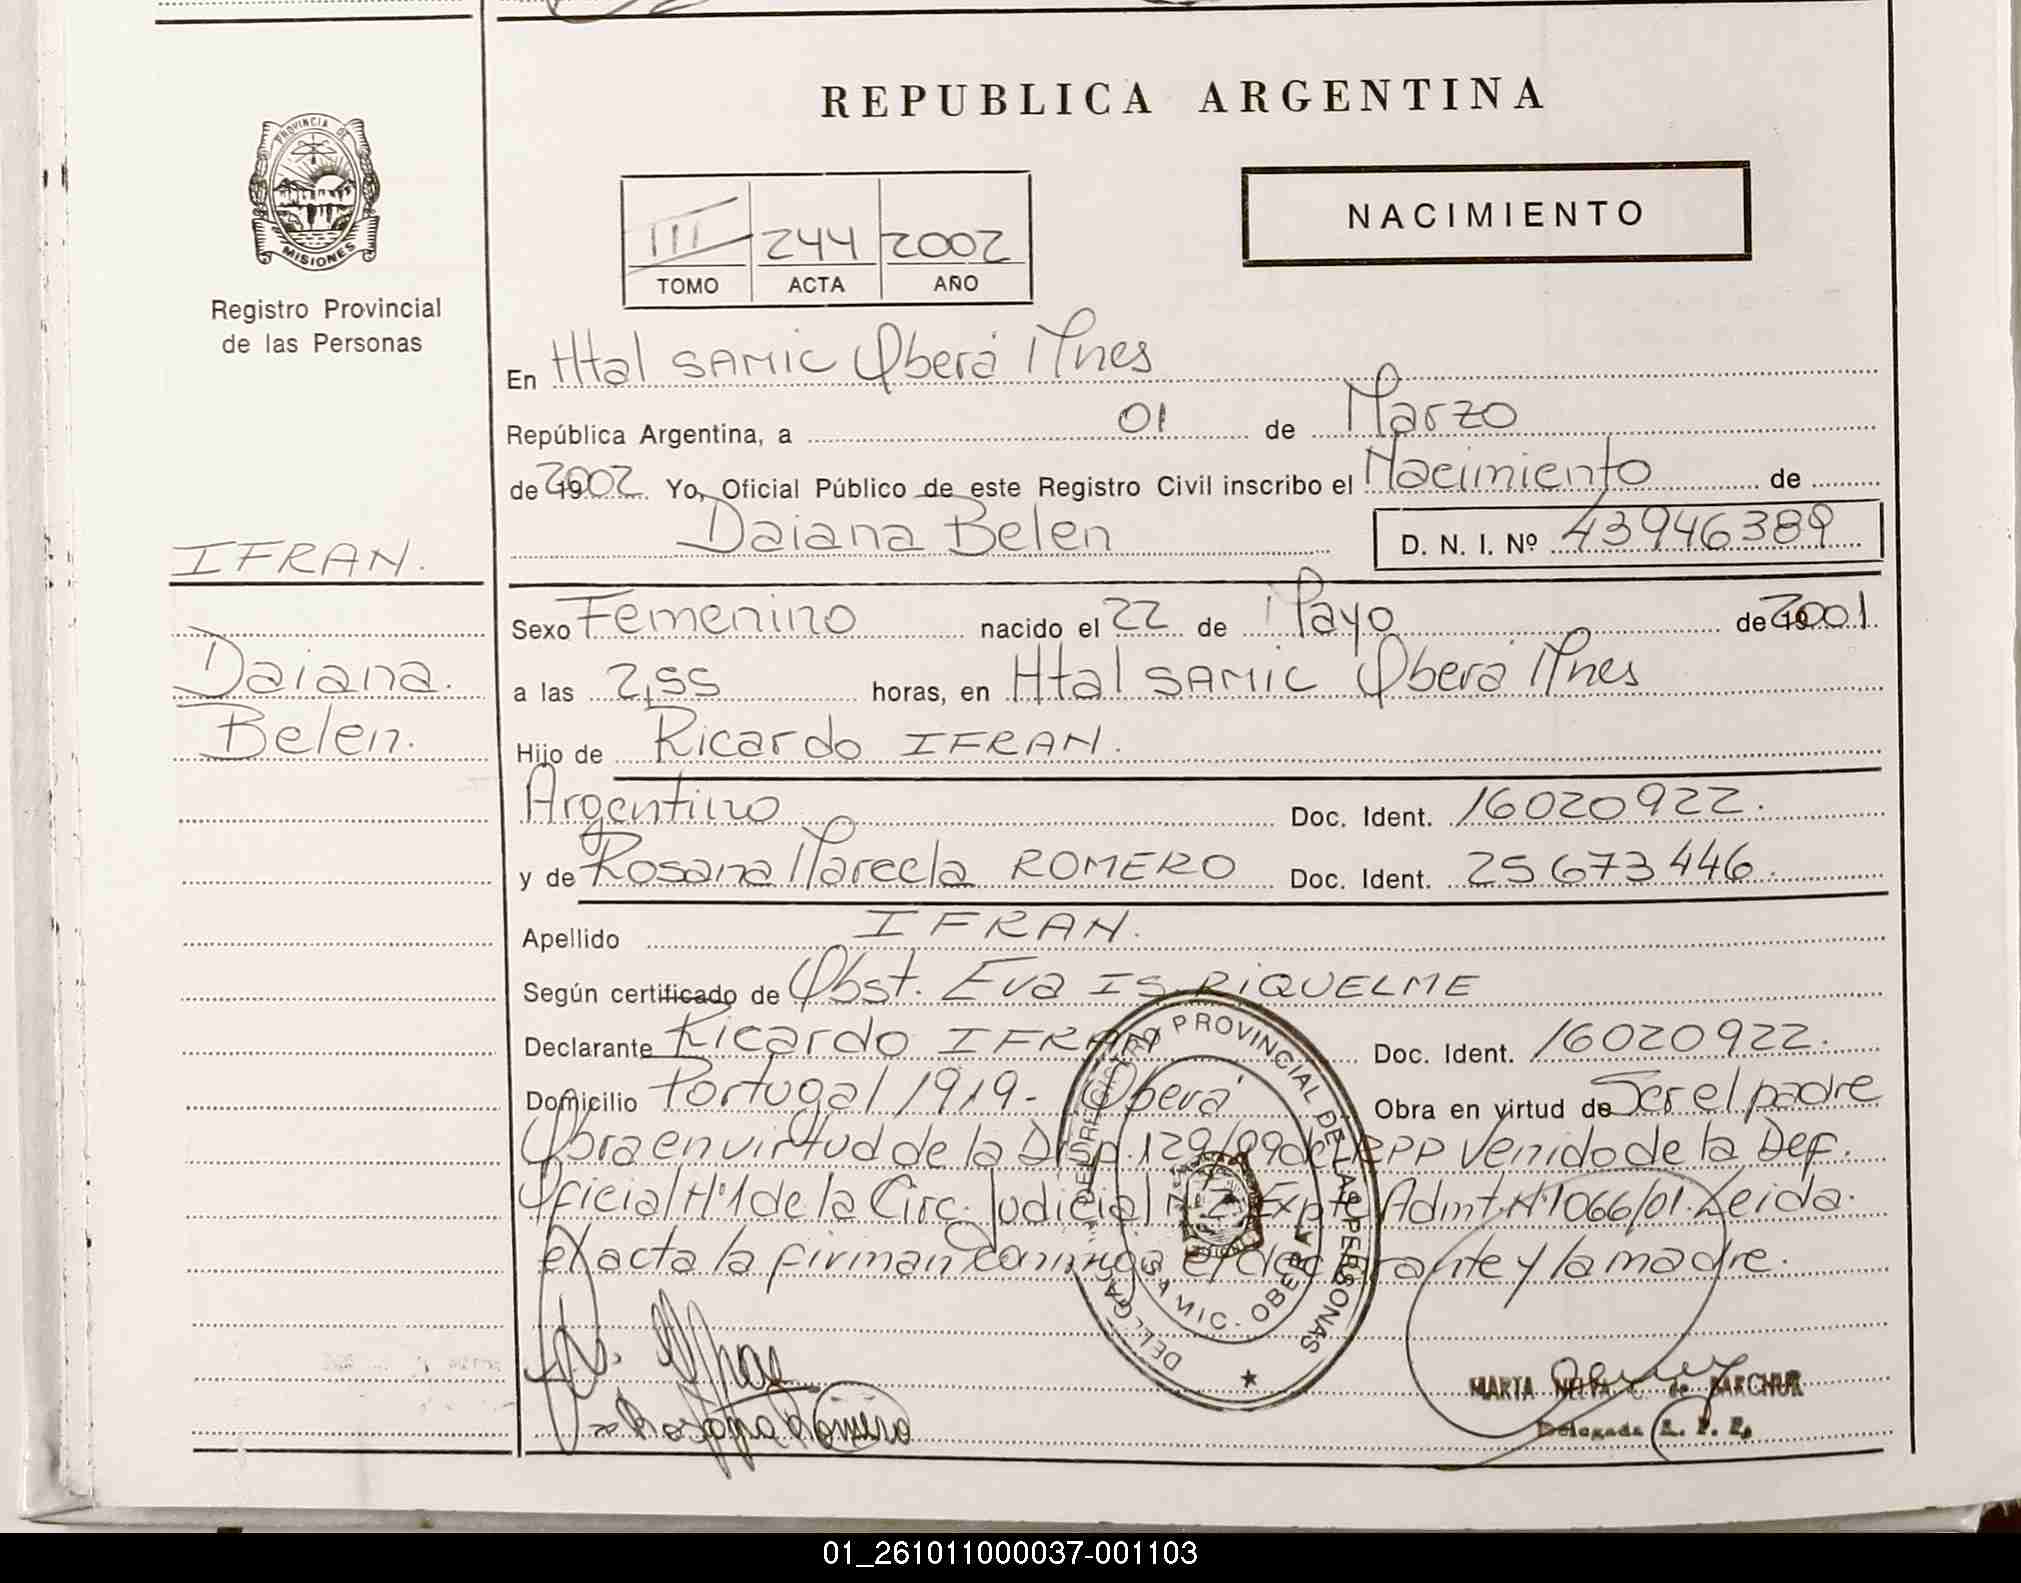 REPUBLICA ARGENTINA
PROVINCIA DE
MISIONES
Registro Provincial
de las Personas
NACIMIENTO
III 244 2002
TOMO ACTA AÑO
En Htal SAMIC Oberá Mnes
República Argentina, a 01 de Marzo
de 2002 Yo, Oficial Público de este Registro Civil inscribo el Nacimiento de
Daiana Belen D. N. I. Nº 43946389
IFRAN.
Daiana.
Belen.
Sexo Femenino nacido el 22 de Mayo de 2001
a las 2,55 horas, en Htal SAMIC Oberá Mnes
Hijo de Ricardo IFRAN.
Argentino Doc. Ident. 16020922.
y de Rosana Marecla ROMERO Doc. Ident. 25673446.
Apellido IFRAN.
Según certificado de Obst. Eva IS. RIQUELME
Declarante Ricardo IFRAN Doc. Ident. 16020922.
Domicilio Portugal 1919- Oberá Obra en virtud de Ser el padre
Obra en virtud de la Disp. 129/99 del RPP Venido de la Def.
Oficial Nº1 de la Circ. Judicial Nº2 Expte Admt. Nº1066/01. Leida.
exacta la firman conmigo el declarante y la madre.
DELEGACION DEL REGISTRO PROVINCIAL DE LAS PERSONAS
SAMIC. OBERA
Rosana Romero
MARTA NELVA C. de BARCHUK
Delegada R. P. P.
01_261011000037-001103